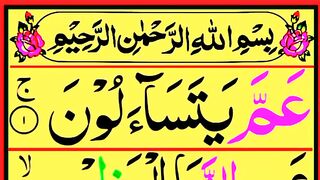 بِسْمِ اللهِ الرَّحْمٰنِ الرَّحِيْمِ
عَمَّ يَتَسَآءَلُوْنَ ۚ ۱